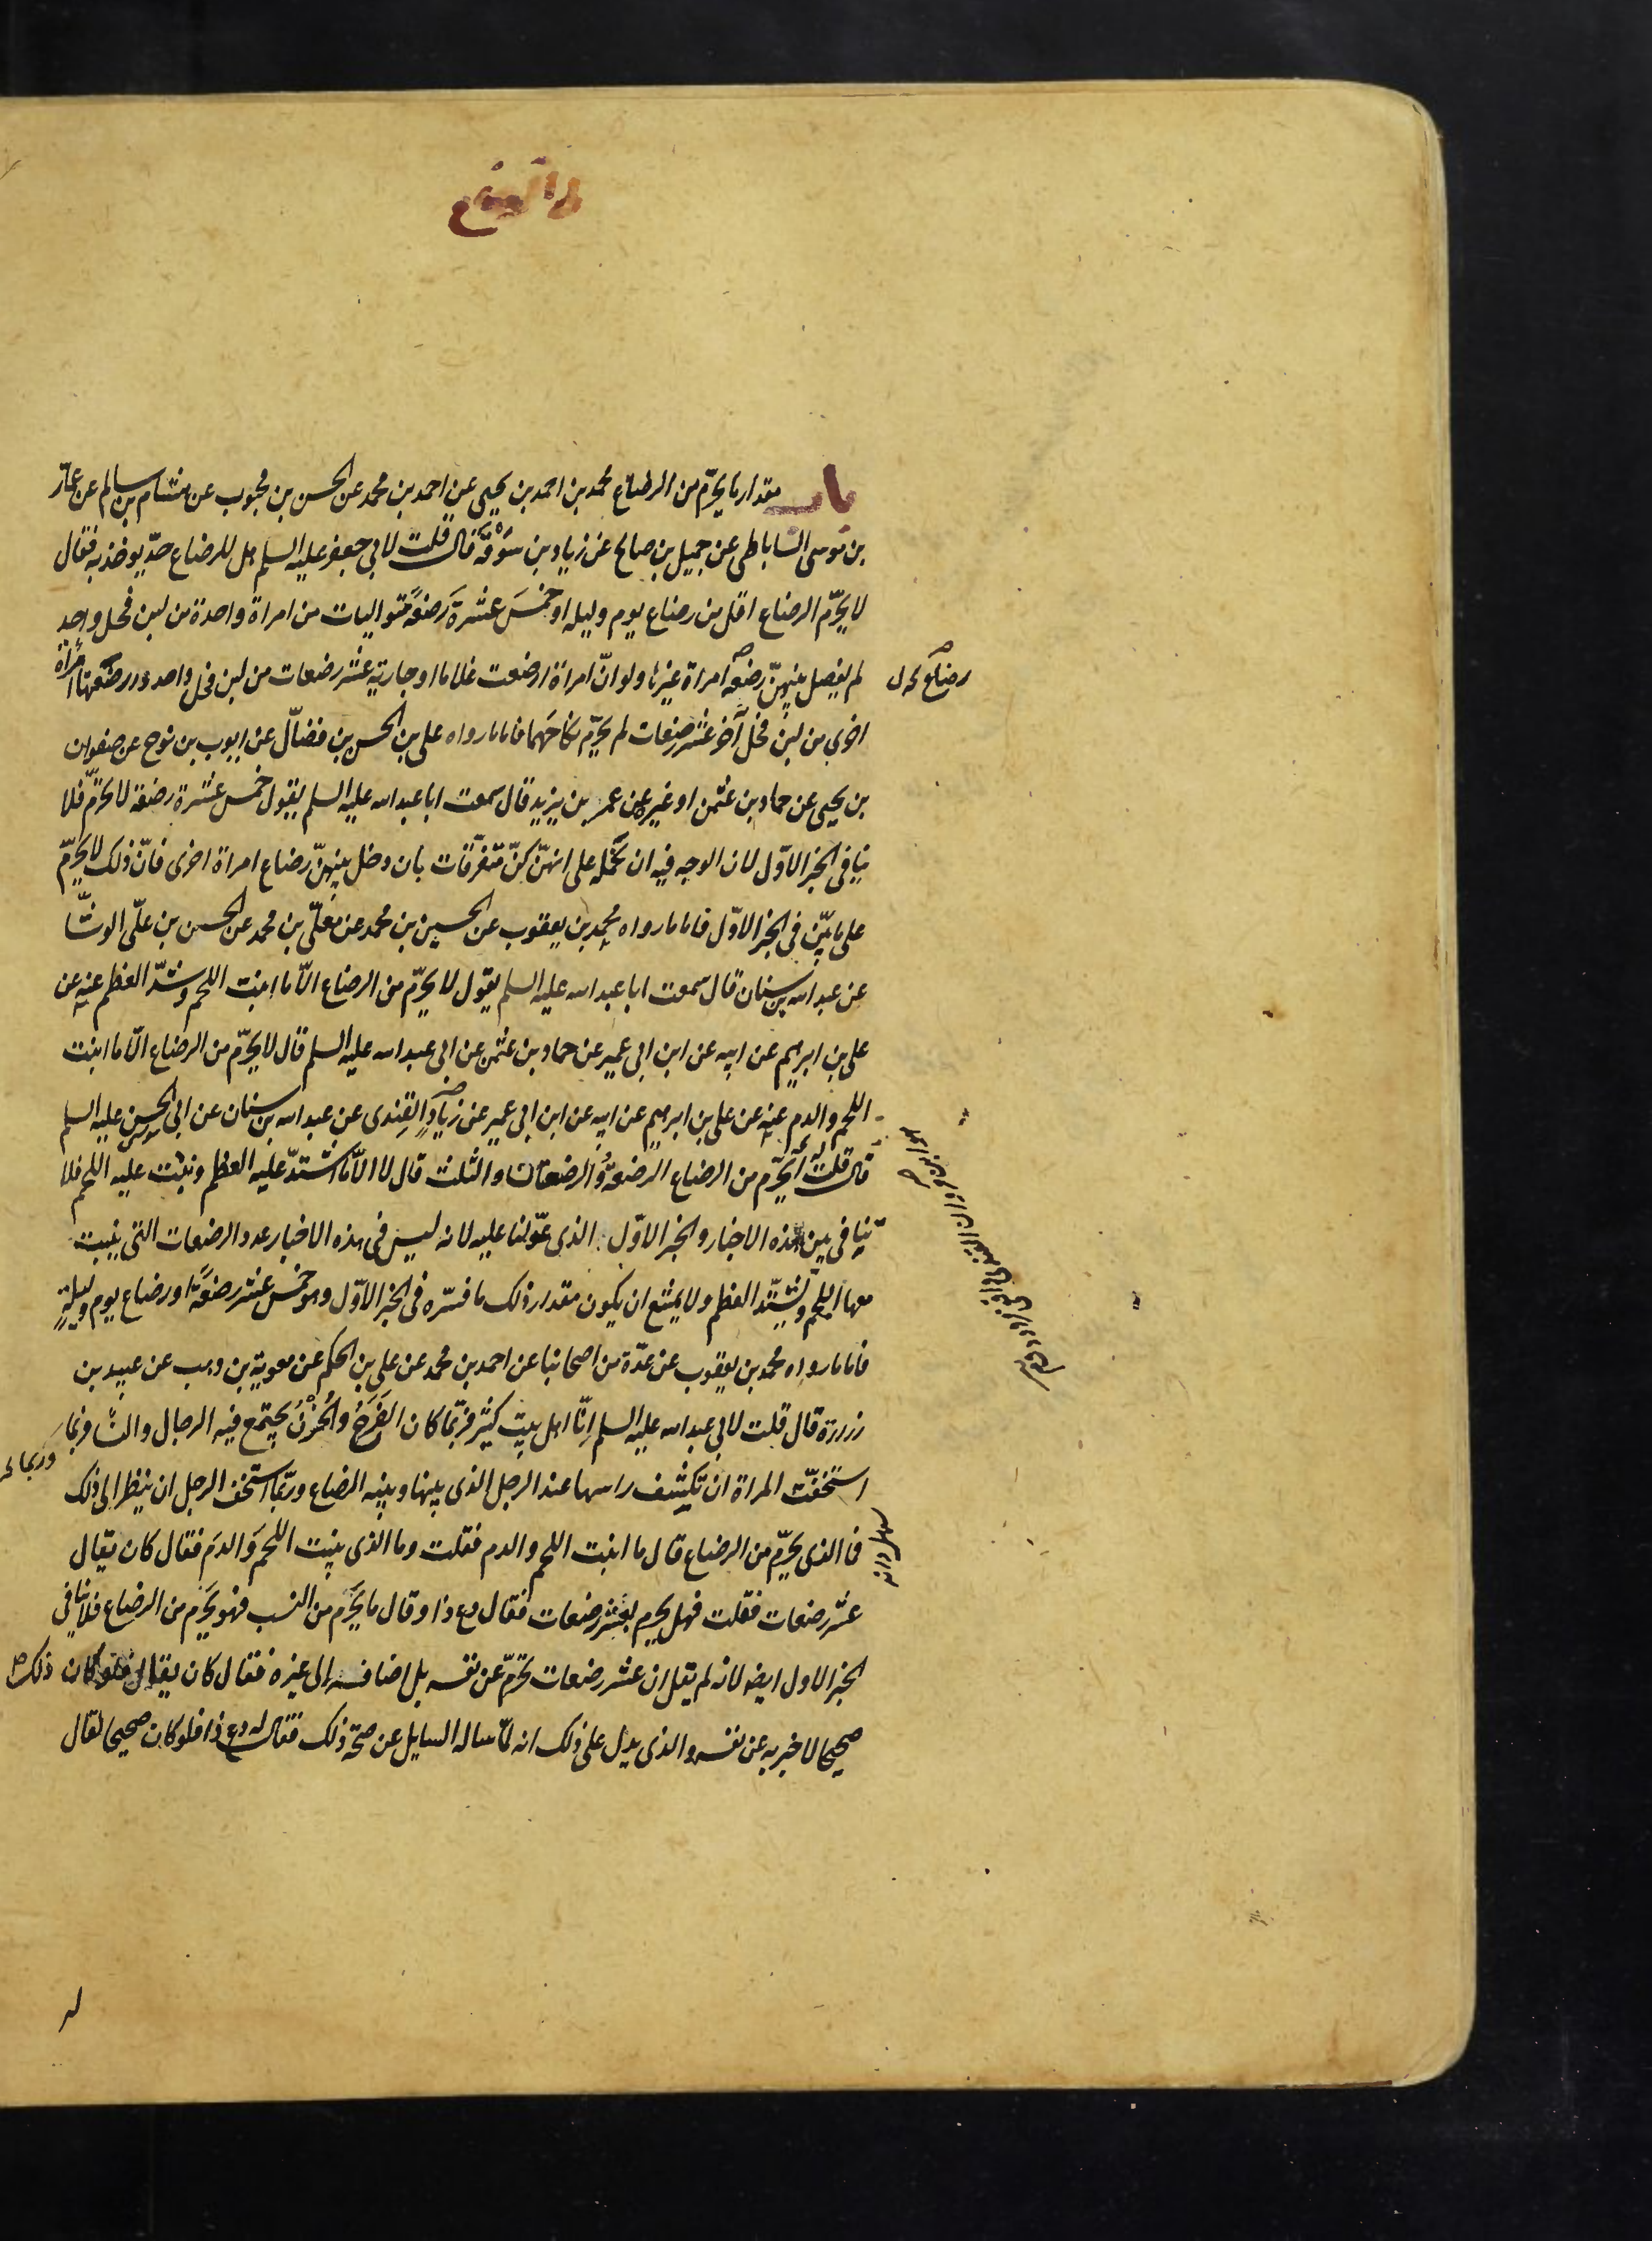 باب مقدار ما يحرّم من الرضاع محمد بن احمد بن يحيى عن احمد بن محمد عن الحسن بن محبوب عن هشام بن سالم عن عمّار
بن موسى الساباطى عن جميل بن صالح عن زياد بن سَوْقَة قال قلت لابى جعفر عليه السلم هل للرضاع حدّ يوخذ به فقال
لا يحرّم الرضاع اقل من رضاع يوم وليله او خمسَ عشرةَ رَضعةً متواليات من امراة واحدة من لبن فحل واحد
لم يفصل بينهنّ رضعة امراة غيرها ولو انّ امراة ارضعت غلاما او جارية عشر رضعات من لبن فحل واحد وارضعتهما امراة
رضاع
اخرى من لبن فحل آخر عشر رضعات لم يحرّم نكاحهما فاما ما رواه على بن الحسن بن فضّال عن ايوب بن نوح عن صفوان
بن يحيى عن حماد بن عثمن او غيره عن عمر بن يزيد قال سمعت ابا عبد الله عليه السلم يقول خمس عشرة رضعة لا يحرّم فلا
ينافى الخبر الاوّل لان الوجه فيه ان نحمله على انهنّ كنّ متفرّقات بان دخل بينهنّ رضاع امراة اخرى فانّ ذلك لا يحرّم
على ما بيّن فى الخبر الاوّل فاما ما رواه محمد بن يعقوب عن الحسين بن محمد عن معلّى بن محمد عن الحسن بن علّى الوشّا
عن عبد الله بن سنان قال سمعت ابا عبد الله عليه السلم يقول لا يحرّم من الرضاع الّا ما انبت اللحم وشدّ العظم عنه عن
على بن ابرهيم عن ابيه عن ابن ابى عمير عن حماد بن عثمن عن ابى عبد الله عليه السلم قال لا يحرّم من الرضاع الّا ما انبت
اللحم والدم عنه عن على بن ابرهيم عن ابيه عن ابن ابى عمير عن زياد القندى عن عبد الله بن سنان عن ابى الحسن عليه السلم
قال قلت له أيحرّم من الرضاع الرضعة والرضعتان والثلث قال لا الّا ما اشتدّ عليه العظم ونبت عليه اللحم فلا
تنافى بين هذه الاخبار والخبر الاوّل الذى عوّلنا عليه لانه ليس فى هذه الاخبار عدد الرضعات التى ينبت
معها اللحم ويشتدّ العظم ولا يمتنع ان يكون مقدار ذلك ما فسّره فى الخبر الاوّل وهو خمس عشر رضعةً او رضاع يوم وليلةٍ
فاما ما رواه محمد بن يعقوب عن عدّة من اصحابنا عن احمد بن محمد عن على بن الحكم عن معوية بن وهب عن عبيد بن
زرارة قال قلت لابى عبد الله عليه السلم انّا اهل بيت كثير فربّما كان الفَرَحُ والحُزْنُ يجتمع فيه الرجال والنسا فربما
وربما
استخفّت المراة ان تكشف راسها عند الرجل الذى بينها وبينه الرضاع وربّما استخف الرجل ان ينظر الى ذلك
فما الذى يحرّم من الرضاع قال ما انبت اللحم والدم فقلت وما الذى ينبت اللحم والدم فقال كان يقال
عشر رضعات فقلت فهل يحرم بعشر رضعات فقال دع ذا وقال ما يحرّم من النسب فهو يحرّم من الرضاع فلا ينافى
الخبر الاول ايضا لانه لم يقل ان عشر رضعات تحرّم عن نفسه بل اضافه الى غيره فقال كان يقال فلو كان ذلك
صحيحا لاخبر به عن نفسه والذى يدل على ذلك انه لمّا ساله السايل عن صحة ذلك فقال له دع ذا فلو كان صحيحا لقال